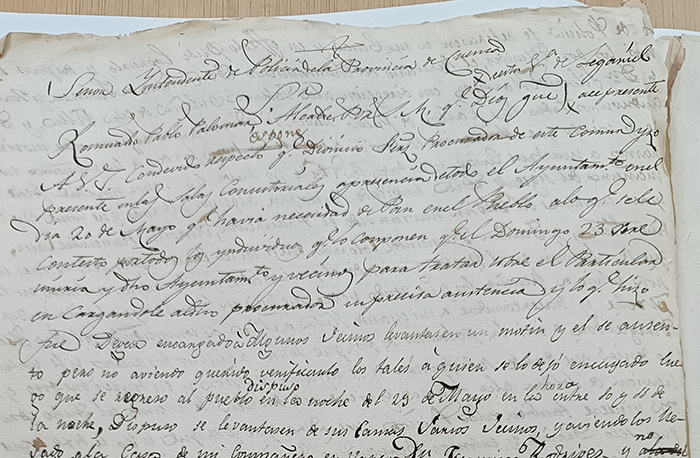 Señor Yntendente de Policia de la Provincia de Cuenca
Romualdo Pablo Palomar, Alcalde Por S. M. q.e Dios gue) de esta V.a de Leganiel
expone
A. V. S. Con devido respecto q.e Dionicio Procurador de este Comun hizo
presente en las Salas Consitoriales a presencia de todo el Ayuntam.to en el
dia 20 de Mayo q.e havia necesidad de Pan en el Pueblo a lo q.e se le
contesto por todos los yndividuos q.e lo componen q.e el Domingo 23 se
y dho Ayuntam.to y vecinos para tratar sobre el Particular
en Cargandole a dho procurador su precisa asistencia y lo q.e hizo
fue Algunos Vecinos levantasen un motin y el se ausen-
to pero no aviendo querido verificarlo los tales a quien se lo dejó encargado lue
go que se regreso al pueblo en la noche del 23 de Mayo en la hora entre 10 y 11 de
dispuso
la noche, Dispuso se levantasen de sus Camas Varios Vecinos, y aviendolos lle-
vado a la Casa de mi Compañero Rodriguez y no